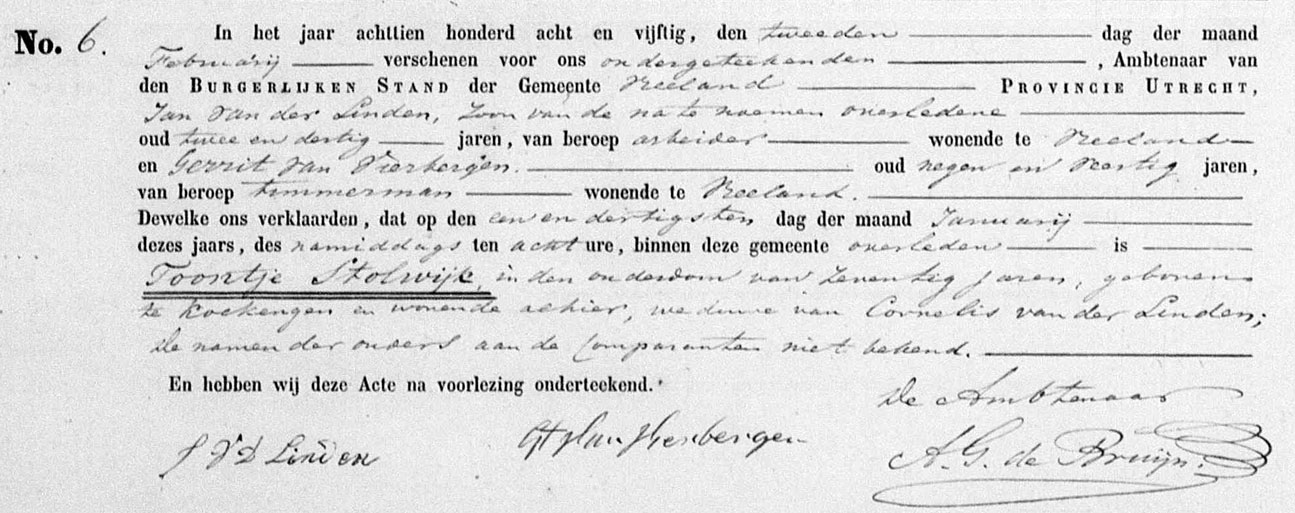 No. 6.
In het jaar achttien honderd acht en vijftig, den tweeden dag der maand
Februarij verschenen voor ons ondergeteekenden, Ambtenaar van
den BURGERLIJKEN STAND der Gemeente Vreeland PROVINCIE UTRECHT,
Jan van der Linden, Zoon van de na te noemen overledene
oud twee en dertig jaren, van beroep arbeider wonende te Vreeland
en Gerrit van Vierbergen. oud negen en veertig jaren,
van beroep timmerman wonende te Vreeland.
Dewelke ons verklaarden, dat op den een en dertigsten dag der maand Januarij
dezes jaars, des namiddags ten acht ure, binnen deze gemeente overleden is
Toontje Stolwijk, in den ouderdom van zeventig jaren, geboren
te Kockengen en wonende alhier, weduwe van Cornelis van der Linden;
De namen der ouders aan de Comparanten niet bekend.
En hebben wij deze Acte na voorlezing onderteekend.
De Ambtenaar
J V D Linden
A. G. de Bruijn.